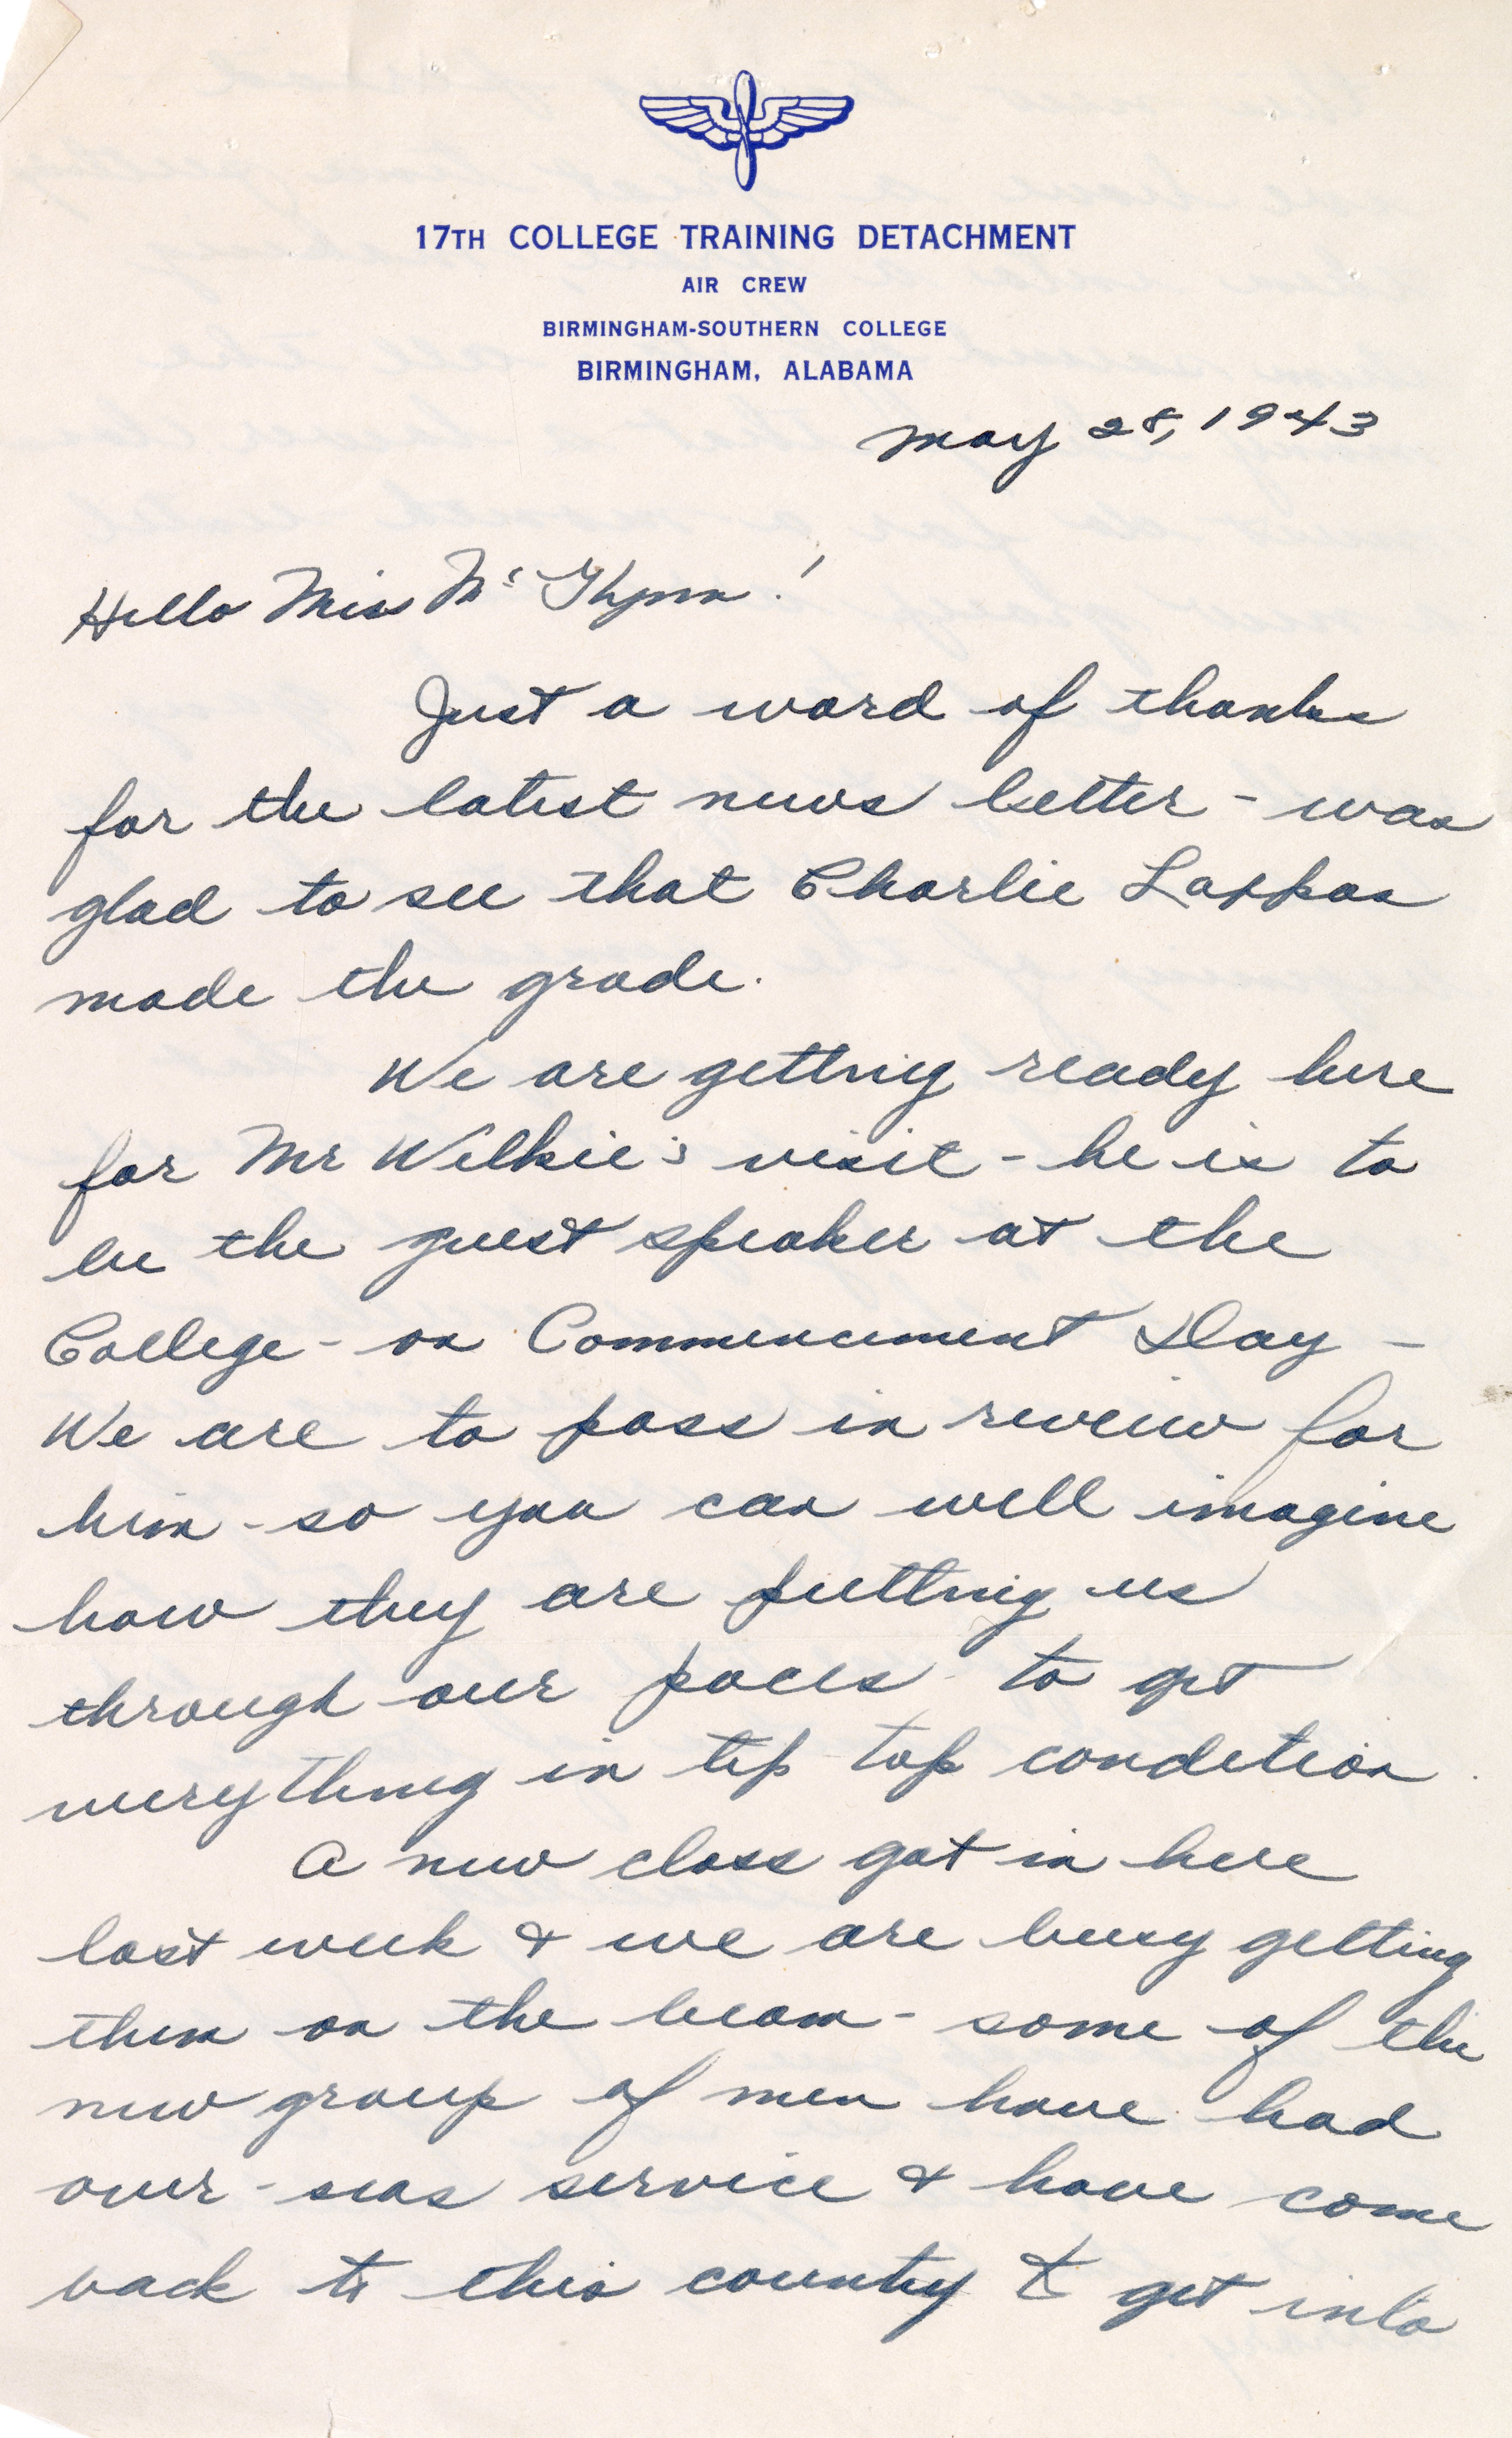 17TH COLLEGE TRAINING DETACHMENT
AIR CREW
BIRMINGHAM-SOUTHERN COLLEGE
BIRMINGHAM, ALABAMA
May 28, 1943
Hello Miss Mc Glynn!
Just a word of thanks
for the latest news letter - was
glad to see that Charlie Lappas
made the grade.
We are getting ready here
for Mr Wilkie's visit - he is to
be the guest speaker at the
College - on Commencement Day -
We are to pass in reveiw for
him - so you can well imagine
how they are putting us
through our paces to get
everything in tip top condition.
A new class got in here
last week & we are busy getting
them on the beam - some of the
new group of men have had
over-seas service & have come
back to this country to get into